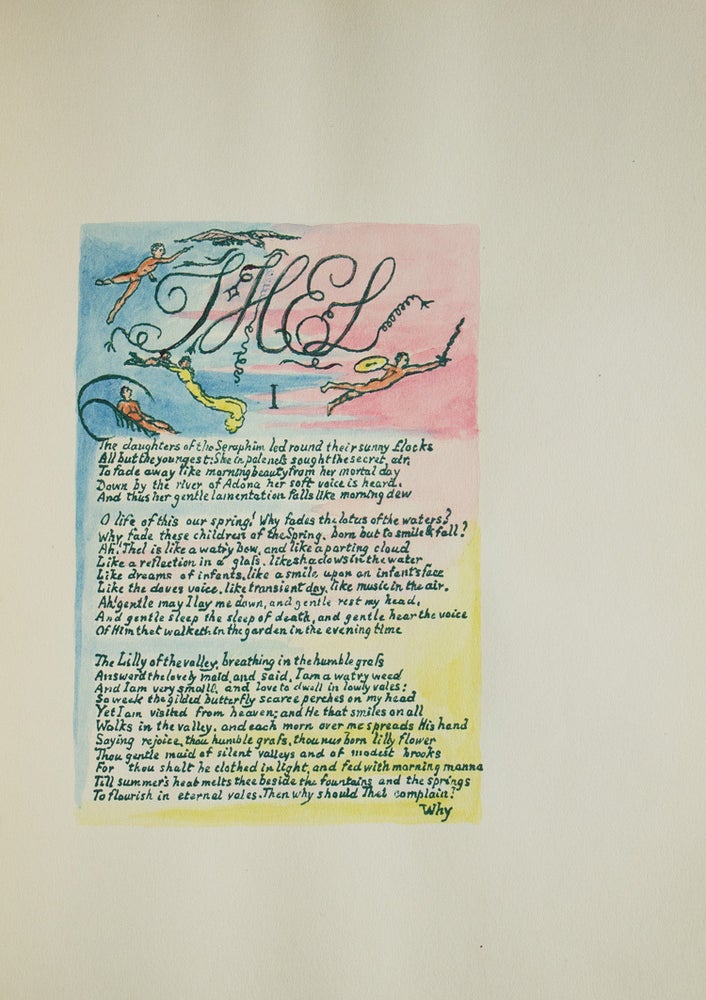 THEL
I
The daughters of the Seraphim led round their sunny flocks
All but the youngest; She in paleness sought the secret air.
To fade away like morning beauty from her mortal day
Down by the river of Adona her soft voice is heard.
And thus her gentle lamentation falls like morning dew
O life of this our spring! Why fades the lotus of the waters?
Why fade these children of the Spring, born but to smile & fall?
Ah! Thel is like a watry bow, and like a parting cloud
Like a reflection in a glass. like shadows in the water
Like dreams of infants. like a smile upon an infants face
Like the doves voice, like transient day, like music in the air.
Ah! gentle may I lay me down, and gentle rest my head.
And gentle sleep the sleep of death, and gentle hear the voice
Of Him that walketh in the garden in the evening time
The Lilly of the valley, breathing in the humble grass
Answerd the lovely maid, and said, I am a watry weed
And I am very small, and love to dwell in lowly vales;
So weak the gilded butterfly scarce perches on my head
Yet I am visited from heaven; and He that smiles on all
Walks in the valley, and each morn over me spreads His hand
Saying rejoice, thou humble grass, thou new born lilly flower
Thou gentle maid of silent valleys and of modest brooks
For thou shalt be clothed in light, and fed with morning manna
Till summer's heat melts thee beside the fountains and the springs
To flourish in eternal vales. Then why should Thel complain?
Why